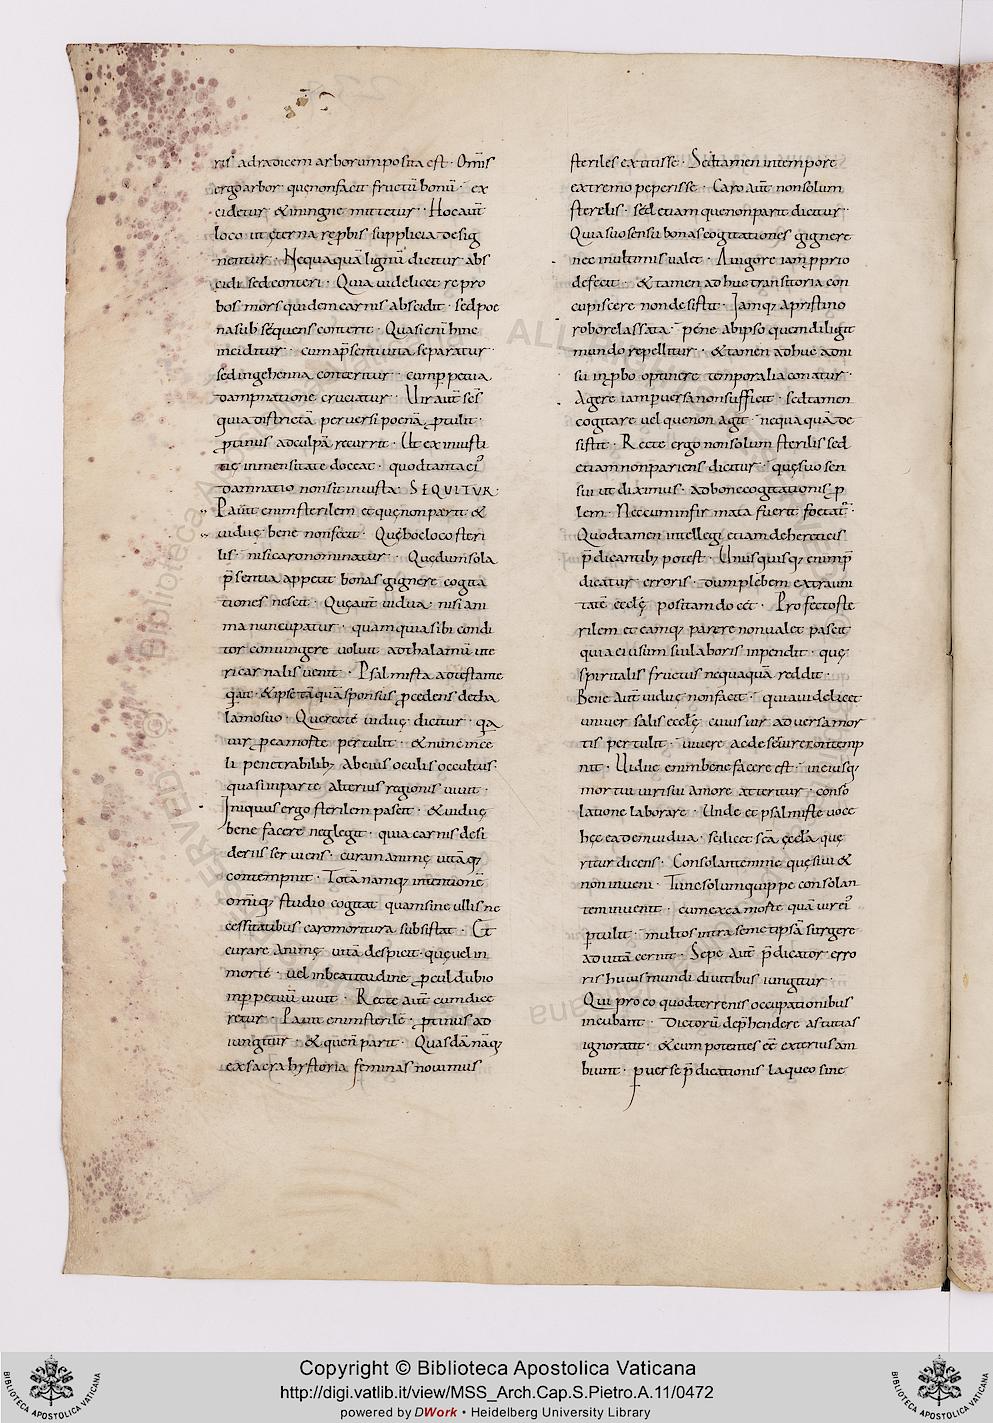 ris adradicem arborumposita est · Om̅is
ergo arbor · quenonfacit fructū bonū · ex
cidetur · & inigne mittetur · Hocaut̅
loco ut ęterna rep̱bis supplicia desig
nentur · Nequaquā lignū dicitur abs
cidi sed conteri · Quia uidelicet repro
bos mors quidem carnis abscidit · sedpoe
na sub sequens conterit · Quasi eni̅ hinc
inciditur · cum ap̅senti uita separatur ·
sed ingehenna conteritur · cump̱petua
dampnatione cruciatur · Uir aut̅ se̅s
quia districtā peruersi poenā · ꝓtulit ·
ꝓtinus adculpā recurrit · Ut ex iniusti
tię inmensitate doceat · quodtanta ei᾽
damnatio nonsit iniusta · SEQUITUR ·
Pauit enim sterilem et quę nonparit &
uiduę bene nonfecit · Quę hocloco steri
lis · nisi caro nominatur · Quę dum sola
p̅sentia appetit bonas gignere cogita
tiones nescit · Quę aut̅ uidua · nisi ani
ma nuncupatur · quam quia sibi condi
tor coniungere uoluit adthalamū ute
ri carnalis uenit · Psalmista adtestante
qui ait · & ipse tā quā sponsus ꝓcedens detha
lamo suo · Que recte uiduę dicitur · q̅a
uir ꝓ ea morte pertulit · & nunc in ce
li penetrabilib; ab eius oculis occultus
quasi inparte alterius regionis uiuit ·
Iniquus ergo sterilem pascit · & uiduę
bene facere neglegit · quia carnis desi
deriis seruiens · curam animę uitāq;
contempnit · Totā namq; intentionē
om̅iq; studio cogitat quam sine ullis ne
cessitatibus caro moritura subsistat · Et
curare animę uitā despicit · quę uel in
morte · uel inbeatitudine ꝓcul dubio
inp̱petuū uiuit · Recte aut̅ cum dice
retur · Pauit enim sterilē · ꝓtinus ad
iungitur · & quen̅ parit · Quasdā nāq;
exsacra hystoria feminas nouimus
steriles extitisse · Sed tamen intempore
extremo peperisse · Caro aut̅ nonsolum
sterelis · sed etiam quenonparit dicitur
Quia suo sensu bonas cogitationes gignere
nec inultimis ualet · A uigore iam p̱prio
deficit · & tamen adhuc transitoria con
cupiscere nondesistit · Iamq; a pristino
robore lassata · pene abipso quem diligit
mundo repellitur · & tamen adhuc adni
su inp̱bo optinere temporalia conatur ·
Agere iam p̱uersa nonsufficit · sed tamen
cogitare uel quenon agit · nequaquā de
sistit · Recte ergo nonsolum sterilis sed
etiam nonpariens dicitur · quę suo sen
sui ut diximus · adbone cogitationis p̱
lem · Nec cum infirmata fuerit foetat᾽ ·
Quod tamen intellegi etiam dehereticis
p̅dicantib; potest · Unusquisq; enim p̅
dicatur erroris · dum plebem extra uni
tatē eccłę positam docet · Profecto ste
rilem et eamq; parere nonualet pascit
quia ei usum sui laboris inpendit · quę
spiritalis fructus nequaquā reddit ·
Bene aut̅ uiduę nonfacit · quia uidelicet
uniuersalis eccłę cuius uir aduersa mor
tis pertulit · uiuere aedeseruire contemp
nit · Uiduę enim bene facere est · in eiusq;
mortui uiri sui amore atteritur · conso
latione laborare · Unde et psalmiste uoce
hęc eadem uidua · scilicet scā ęccł̅a que
ritur dicens · Consolantem me quęsiui &
non inueni · Tunc solum quippe consolan
tem inuenit · cum ex ea morte quā uir ei᾽
p̱tulit · multos intra semetipsā surgere
ad uitā cernit · Sepe aut̅ p̅dicator erro
ris huius mundi diuitibus iungitur ·
Qui pro eo quod terrenis occupationibus
incubant · Dictorū dep̅hendere astutias
ignorant · & cum potentes eē exterius am
biunt · p̱uerse p̅dicationis laqueo sine
Copyright © Biblioteca Apostolica Vaticana
http://digi.vatlib.it/view/MSS_Arch.Cap.S.Pietro.A.11/0472
powered by DWork • Heidelberg University Library